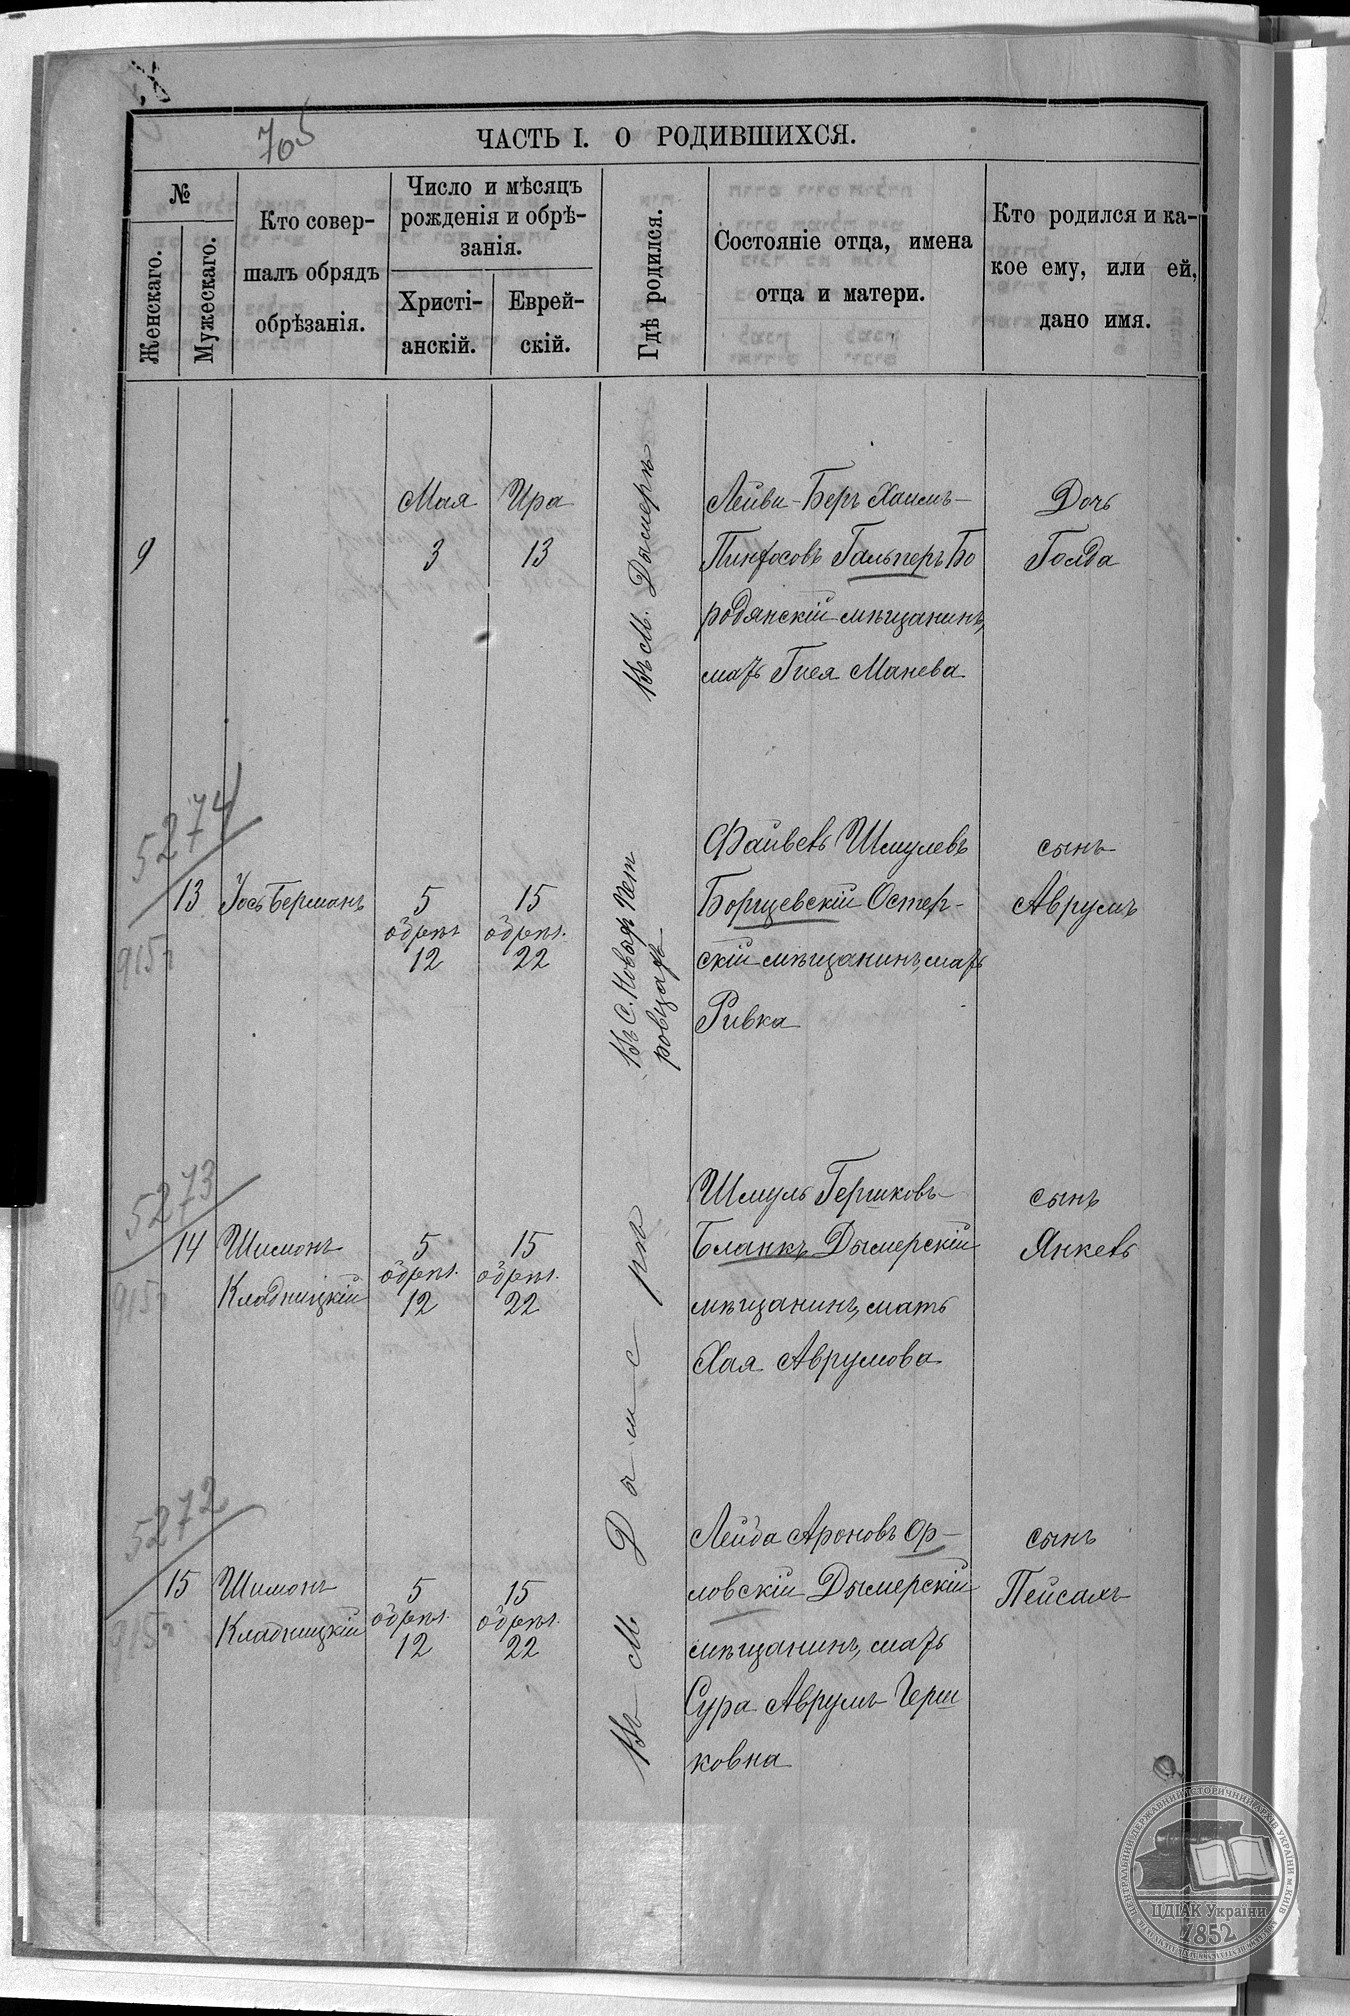 705
ЧАСТЬ I. О РОДИВШИХСЯ.
№
Женскаго.
Мужескаго.
Кто совер-
шалъ обрядъ
обрѣзанія.
Число и мѣсяцъ
рожденія и обрѣ-
занія.
Христі-
анскій.
Еврей-
скій.
Гдѣ родился.
Состояніе отца, имена
отца и матери.
Кто родился и ка-
кое ему, или ей,
дано имя.
9
Мая
3
Ира
13
Въ М. Дымерѣ
Лейви-Беръ Хаимъ-
Пинхосовъ Гальперъ Бо
родянскій мѣщанинъ,
мать Гися Манева
Дочь
Голда
5274
915г
13
Іось Берманъ
5
обрѣз.
12
15
обрѣз.
22
Въ С. Новых Пет
ровцах
Файвель Шмулевъ
Борщевскій Остер-
скій мѣщанинъ, мать
Ривка
сынъ
Аврумъ
5273
915г
14
Шимонъ
Кладницкій
5
обрѣз.
12
15
обрѣз.
22
Въ М Дымерѣ
Шмуль Гершковъ
Бланкъ Дымерскій
мѣщанинъ, мать
Хая Аврумова
сынъ
Янкель
5272
915г
15
Шимонъ
Кладницкій
5
обрѣз.
12
15
обрѣз.
22
Лейба Ароновъ Ор-
ловскій Дымерскій
мѣщанинъ, мать
Сура Аврумъ Герш
ковна
сынъ
Пейсахъ
ЦЕНТРАЛЬНИЙ ДЕРЖАВНИЙ ІСТОРИЧНИЙ АРХІВ УКРАЇНИ м. КИЇВ
ЦДІАК України
1852